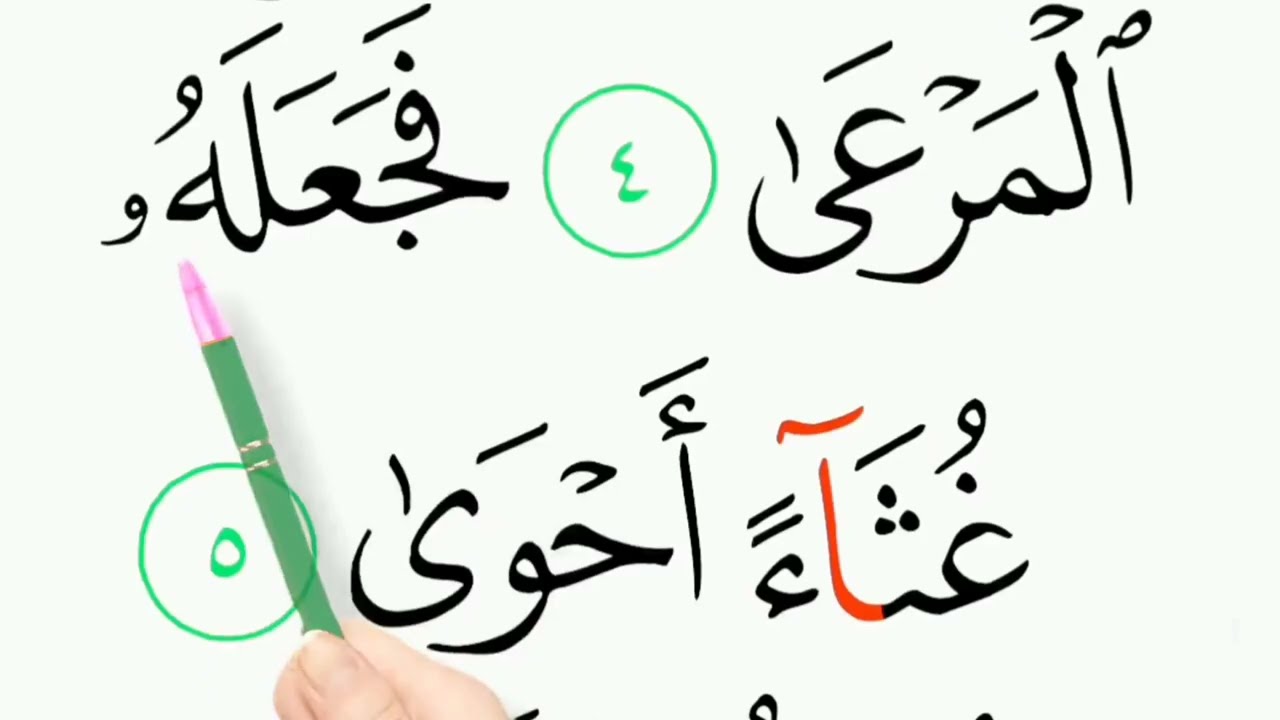 ٱلْمَرْعَىٰ ٤ فَجَعَلَهُۥ
غُثَآءً أَحْوَىٰ ٥